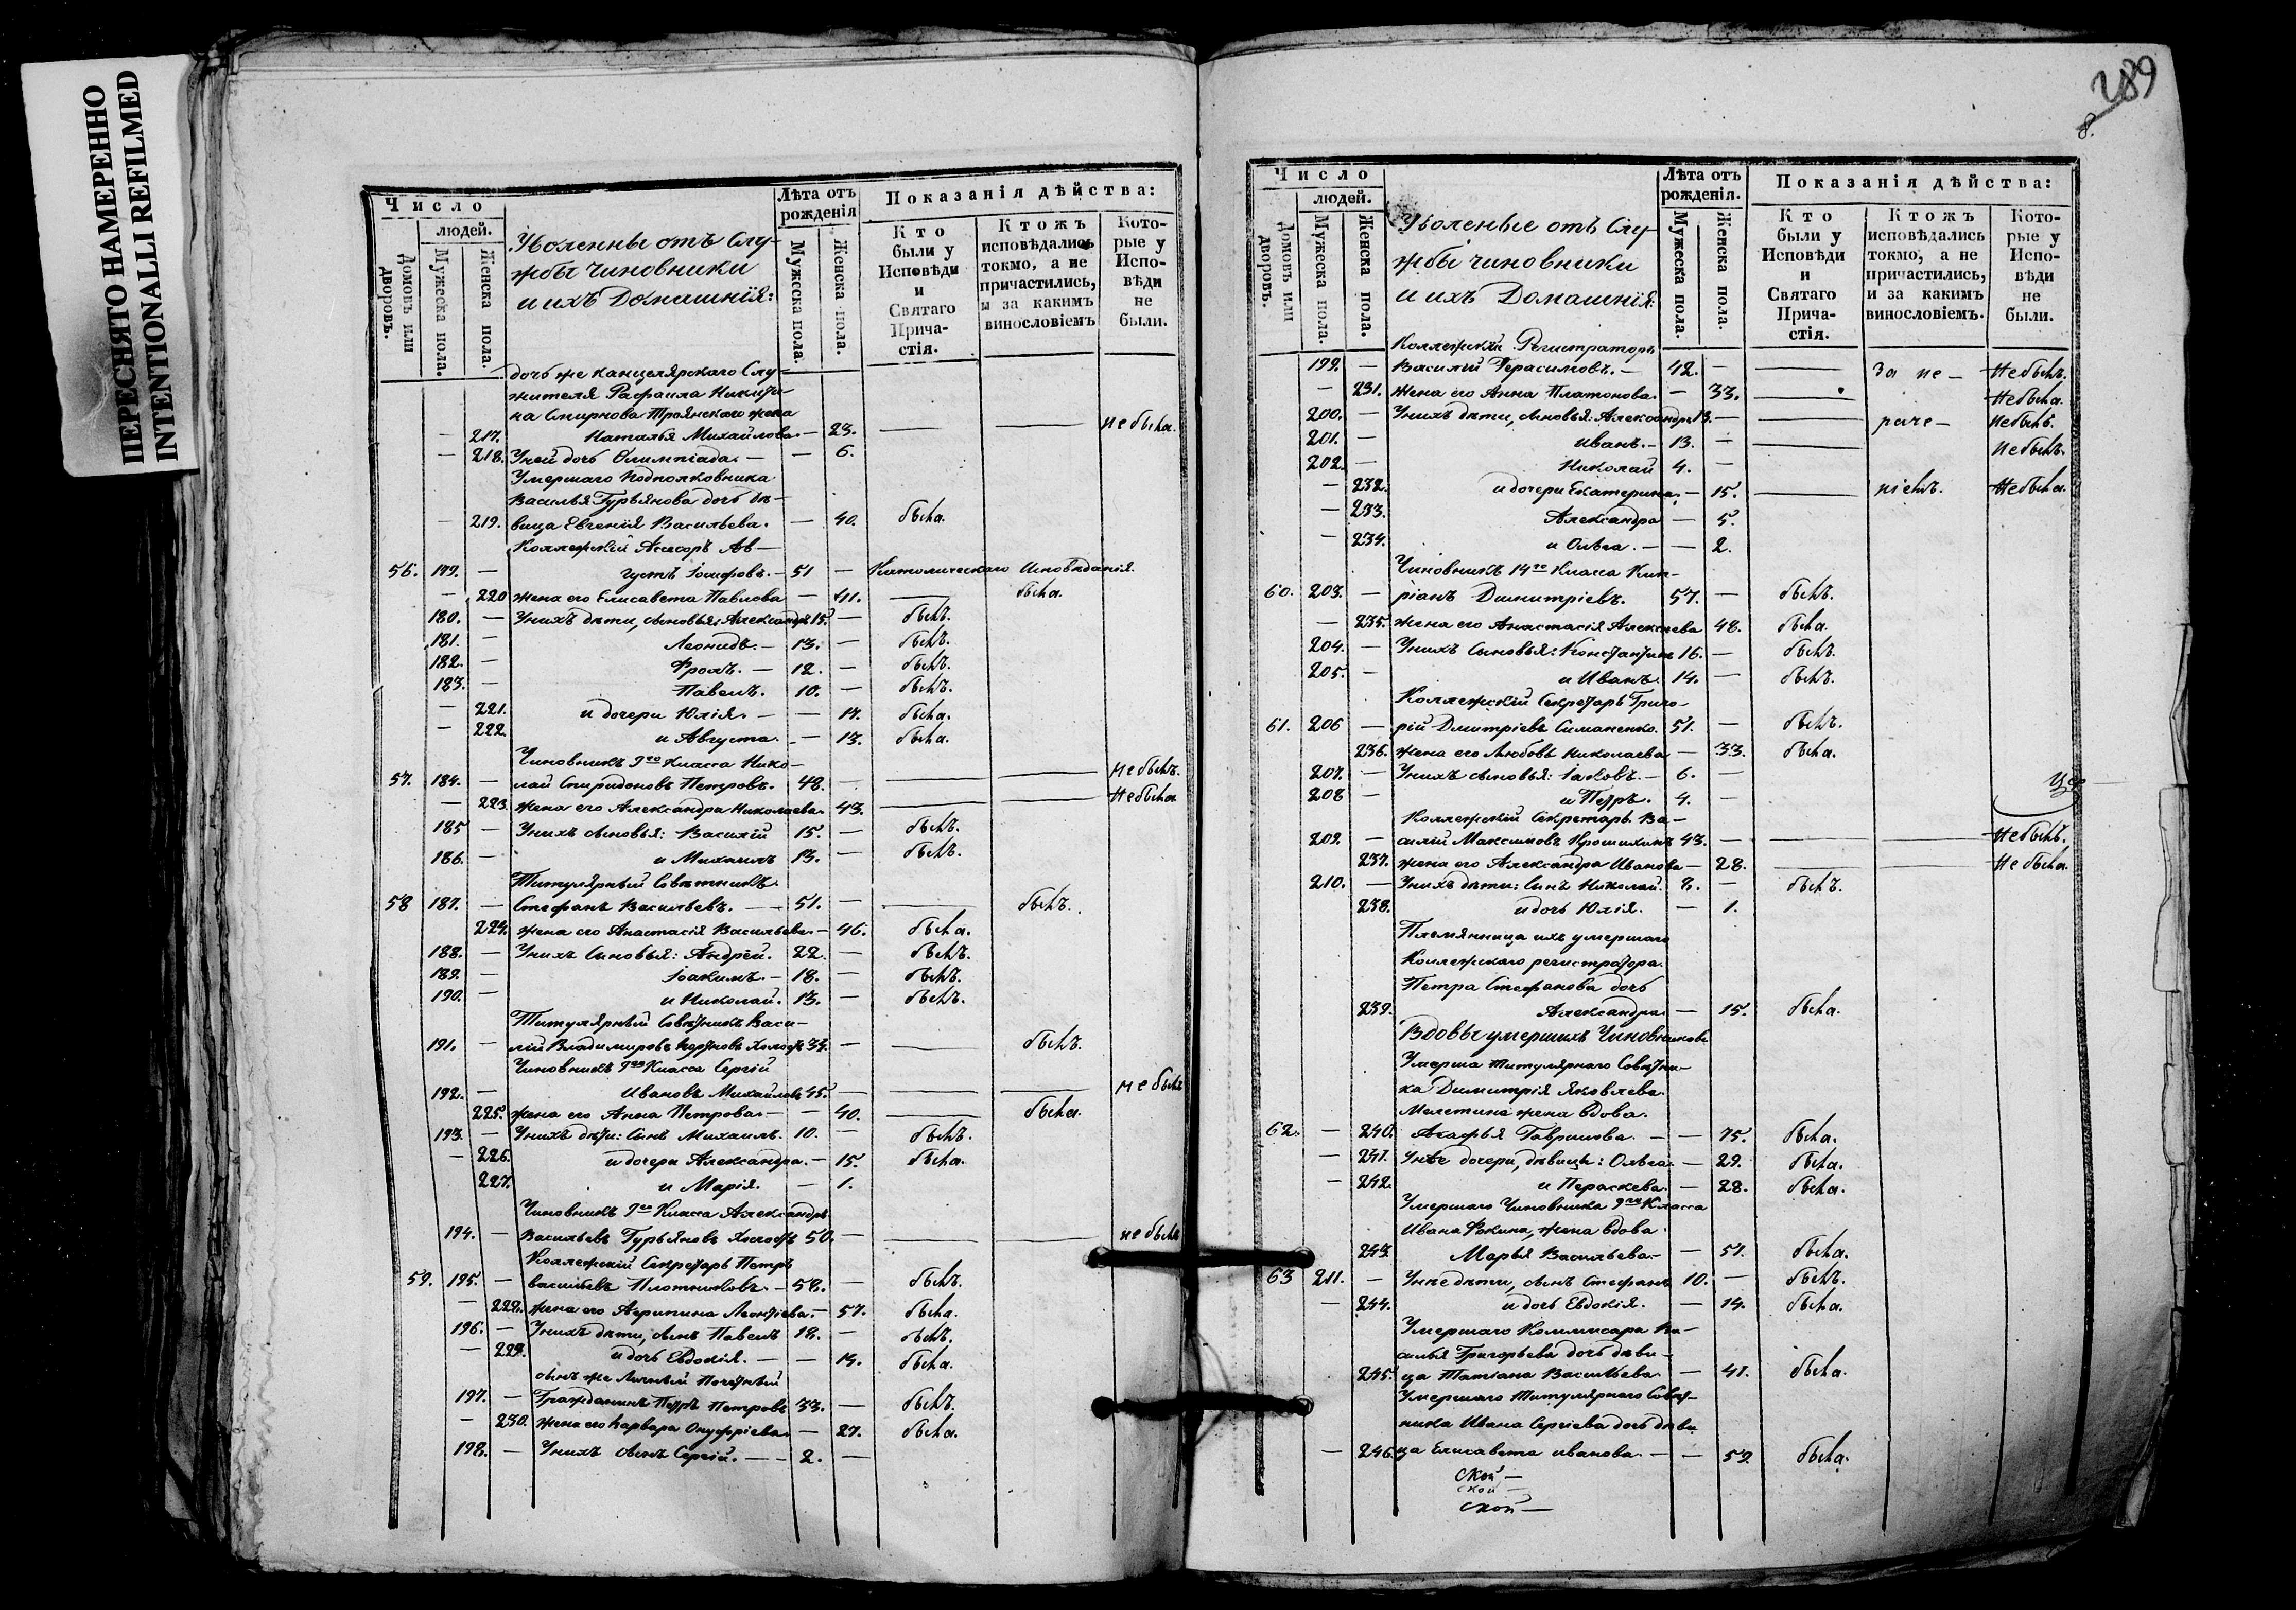 ПЕРЕСНЯТО НАМЕРЕННО
INTENTIONALLI REFILMED
Число
людей.
Домовъ или дворовъ.
Мужеска пола.
Женска пола.
Уволенные отъ Слу-
жбы чиновники
и ихъ Домашнія:
Лѣта отъ рожденія
Мужеска пола.
Женска пола.
Показанія дѣйства:
Кто были у Исповѣди и Святаго Прича-стія.
Ктожъ исповѣдались токмо, а не причастились, и за какимъ винословіемъ
Кото-рые у Испо-вѣди не были.
дочь же канцелярскаго Слу-
жителя Рафаила Никити-
на Смирнова Троянскаго жена
— 217. Наталья Михайлова. — 23. — — не была.
— 218. У ней дочь Олимпіада. — — 6.
Умершаго Подполковника
Василья Гурьянова дочь дѣ-
— 219. вица Евгенія Васильева. — 40. была.
Коллежскій Асесоръ Ав-
56. 179. — густъ Іосифовъ. — 51 — Католическаго Исповѣданія.
— 220 жена его Елисавета Павлова — 41. — была.
180. — У нихъ дѣти, сыновья: Александръ 15. — былъ.
181. — Леонидъ. — 13. — былъ.
182. — Фролъ. — 12. — былъ.
183. — Павелъ. 10. — былъ.
— 221. и дочери Юлія. — — 17. была.
— 222. и Августа. — 13. была.
Чиновникъ 9го Класса Нико-
57. 184. — лай Спиридоновъ Петровъ. 48. — — — не былъ.
— 223. жена его Александра Николаева. 43. — — Не была.
185 — У нихъ сыновья: Василій 15. — былъ.
186. — и Михаилъ 13. — былъ.
Титулярный Совѣтникъ
58 187. — Стефанъ Васильевъ. — 51. — — былъ.
224. жена его Анастасія Васильева. — 46. была.
188. — У нихъ Сыновья: Андрей. 22. — былъ.
189. — Іоакимъ. — 18. — былъ.
190. — и Николай. 13. — былъ.
Титулярный Совѣтникъ Васи-
191. — лій Владимировъ холостъ 33. — — былъ.
Чиновникъ 9го Класса Сергій
192. — Ивановъ Михайловъ 45. — — — не былъ
225. жена его Анна Петрова. — — 40. — была.
193. — У нихъ дѣти: Сынъ Михаилъ. 10. — былъ.
— 226. и дочери Александра. — 15. была.
227. и Марія. — 1.
Чиновникъ 9го Класса Александръ
194. — Васильевъ Гурьяновъ Холостъ 50. — — — не былъ
Коллежскій Секретарь Петръ
59. 195. — васильевъ Плотниковъ. — 58. — былъ.
— 228. жена его Агрипина Леонтіева. — 57. была.
196. — У нихъ дѣти, сынъ Павелъ 18. — былъ.
— 229. и дочь Евдокія. — — 14. была.
сынъ же Личный Почетный
197. — Гражданинъ Петръ Петровъ 33. — былъ.
— 230. жена его Варвара Онуфріева. — 27. была.
198. — У нихъ сынъ Сергій. — — 2. —
289
8.
Число
людей.
Домовъ или дворовъ.
Мужеска пола.
Женска пола.
Уволеные отъ Слу-
жбы чиновники
и ихъ Домашнія:
Лѣта отъ рожденія.
Мужеска пола.
Женска пола.
Показанія дѣйства:
Кто были у Исповѣди и Святаго Прича-стія.
Ктожъ исповѣдались токмо, а не причастились, и за какимъ винословіемъ.
Кото-рые у Испо-вѣди не были.
Коллежскій Регистраторъ
199. — Василій Герасимовъ. — 42. — — За не — Не былъ.
— 231. Жена его Анна Платонова. — 33. — Не была.
200. — У нихъ дѣти, сыновья: Александръ 13. — — раче — Не былъ.
201. — иванъ. — 13. — — Не былъ.
202. — Николай 4. —
— 232. и дочери Екатерина. — 15. — ніемъ. Не была.
— 233. Александра — 5.
— 234. и Ольга. — — 2.
Чиновникъ 14го Класса Кип-
60. 203. — ріанъ Димитріевъ. 57. — былъ.
— 235. жена его Анастасія Алексѣева 48. была.
204. — У нихъ Сыновья: Константинъ 16. — былъ.
205. — и Иванъ. 14. — былъ.
Коллежскій Секретарь Григо-
61. 206 — рій Дмитріевъ Симаненко. 51. — былъ.
236. жена его Любовь Николаева — 33. была.
207. — У нихъ сыновья: Іаковъ. — 6. —
208 — и Петръ. 4. —
Коллежскій Секретарь Ва-
209. — силій Максимовъ 43. — — — Не былъ.
237. жена его Александра Иванова — 28. — — Не была.
210. — У нихъ дѣти: Сынъ Николай. 8. — былъ.
238. и дочь Юлія. — 1.
Племянница ихъ умершаго
Коллежскаго регистратора
Петра Стефанова дочь
239. Александра. — 15. была.
Вдовы умершихъ Чиновниковъ
Умерша титулярнаго Совѣтни-
ка Димитрія Яковлева
Милетина жена вдова.
62. — 240. Агафья Гаврилова. — — 75. была.
— 241. У нее дочери, дѣвицы: Ольга. — 29. была.
— 242. и Пераскева. — 28. была.
Умершаго Чиновника 9го Класса
Ивана Фокина, жена вдова
243. Марья Васильева. — — 51. была.
63 211. — У нее дѣти, сынъ Стефанъ 10. — былъ.
— 244. и дочь Евдокія. — 14. была.
Умершаго Коммисара Ва-
силья Григорьева дочь дѣви-
245. ца Татіана Васильева — 41. была.
Умершаго Титулярнаго Совѣт-
ника Ивана Сергіева дочь дѣви
— 246. ца Елисавета иванова. — — 59. была.
ской —
ской —
ской —